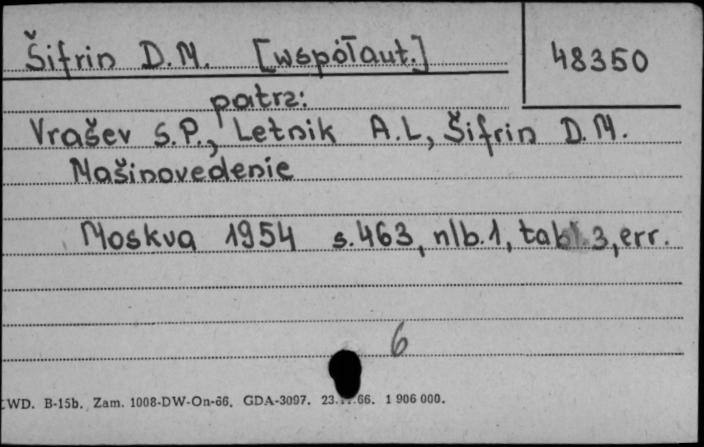 Šifrin D.M. [współaut.]
48350
patrz:
Vrašev S.P., Letnik A.L, Šifrin D.M.
Mašinovedenie
Moskva 1954 s.463, nlb.1, tabl.3, err.
6
WD. B-15b. Zam. 1008-DW-On-66. GDA-3097. 1 906 000.